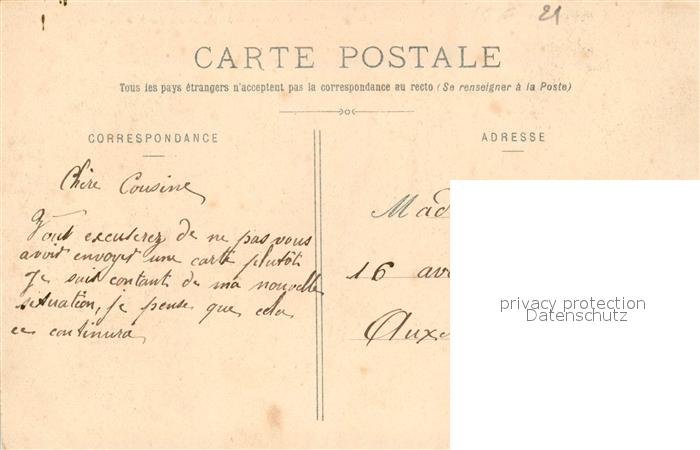 21
CARTE POSTALE
Tous les pays étrangers n'acceptent pas la correspondance au recto (Se renseigner à la Poste)
CORRESPONDANCE
ADRESSE
Chère Cousine
Vous excuserez de ne pas vous
avoir envoyer une carte plutôt
Je suis contant de ma nouvelle
situation, je pense que cela
ce continura
Mad
16 av
Aux
privacy protection
Datenschutz